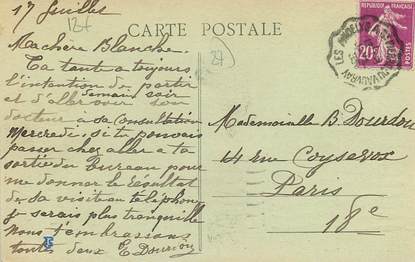 17 Juillet
127
CARTE POSTALE
Ma chère Blanche.
Ta tante a toujours
l'intention de partir
demain soir
et d'aller voir son
docteur a sa consultation
Mercredi, si tu pouvais
passer chez elle a ta
sortie du bureau pour
me donner le résultat
de sa visite au téléphone
je serais plus tranquille
Nous t'embrassons
toutes deux E Dourdou
27
Mademoiselle B. Dourdou
14 rue Coysevox
Paris
18e
REPUBLIQUE FRANÇAISE
20c
POSTES
LES ANDELYS